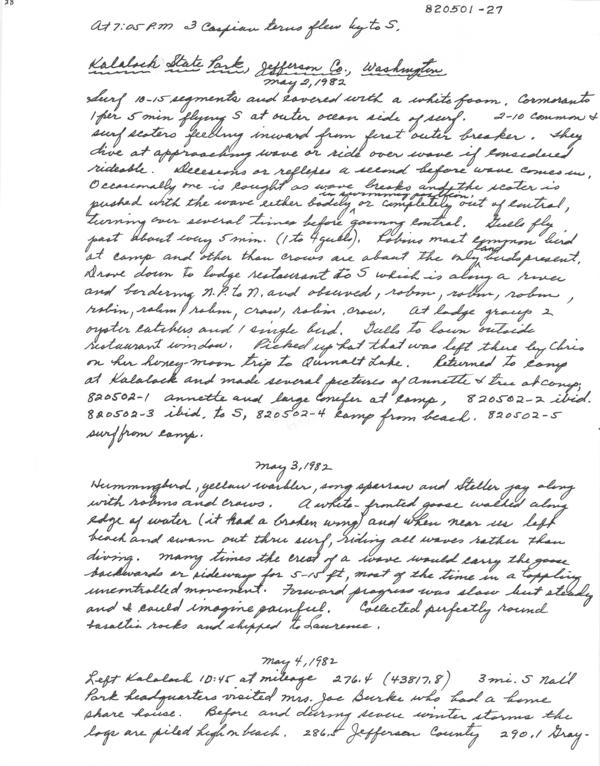 820501-27
At 7:05 P.M 3 Caspian terns flew by to S.
Kalaloch State Park, Jefferson Co., Washington
May 2, 1982
Surf 10-15 segments and covered with a white foam. Cormorants
1 per 5 min flying S at outer ocean side of surf. 2-10 common &
surf scoters feeding inward from first outer breaker. They
dive at approaching wave or ride over wave if considered
rideable. Decesions or reflexes a second before wave comes in.
Occasionally one is caught as wave breaks and the scoter is
pushed with the wave either bodily in swimming position or completely out of control,
turning over several times before gaining control. Gulls fly
past about every 5 min. (1 to 4 gulls). Robins most common land bird
at camp and other than crows are about the only birds present.
Drove down to lodge restaurant to S which is along a river
and bordering N.P. to N. and observed, robin, robin, robin,
robin, robin, robin, crow, robin, crow. At lodge group 2
oyster catchers and 1 single bird. Gulls to lawn outside
restaurant window. Picked up hat that was left there by Chris
on her honey-moon trip to Quinalt Lake. Returned to camp
at Kalaloch and made several pictures of Annette & tree at camp;
820502-1 annette and large conifer at camp, 820502-2 ibid.
820502-3 ibid, to S, 820502-4 camp from beach. 820502-5
surf from camp.
May 3, 1982
Hummingbird, yellow warbler, song sparrow and Steller jay along
with robins and crows. A white-fronted goose walked along
edge of water (it had a broken wing) and when near us left
beach and swam out thru surf, riding all waves rather than
diving. Many times the crest of a wave would carry the goose
backwards or sideways for 5-15 ft, most of the time in a toppling
uncontrolled movement. Forward progress was slow but steady
and I could imagine painful. Collected perfectly round
basaltic rocks and shipped to Laurence.
May 4, 1982
Left Kalaloch 10:45 at mileage 276.4 (43817.8) 3 mi. S Nat'l
Park headquarters visited Mrs. Joe Burke who had a home
share house. Before and during severe winter storms the
logs are piled high on beach. 286.5 Jefferson County 290.1 Gray-